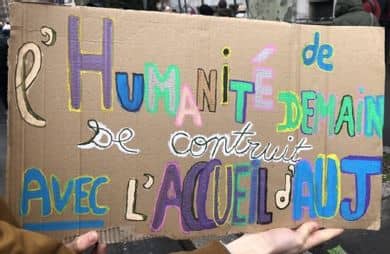 l'HUMANITÉ de DEMAIN
se contruit
AVEC L'ACCUEIL d'AUJ